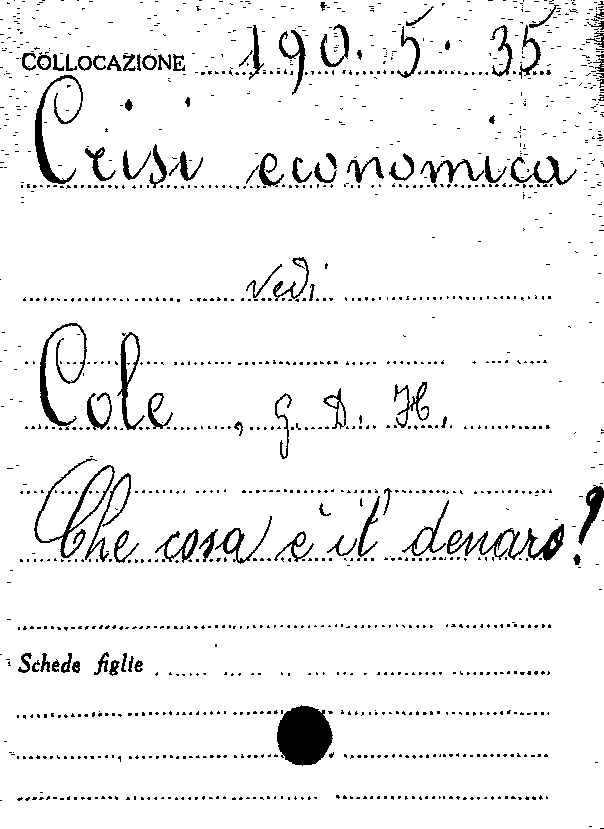 COLLOCAZIONE 190. 5. 35
Crisi economica
vedi
Cole, G. D. H.
Che cosa è il denaro?
Schede figlie